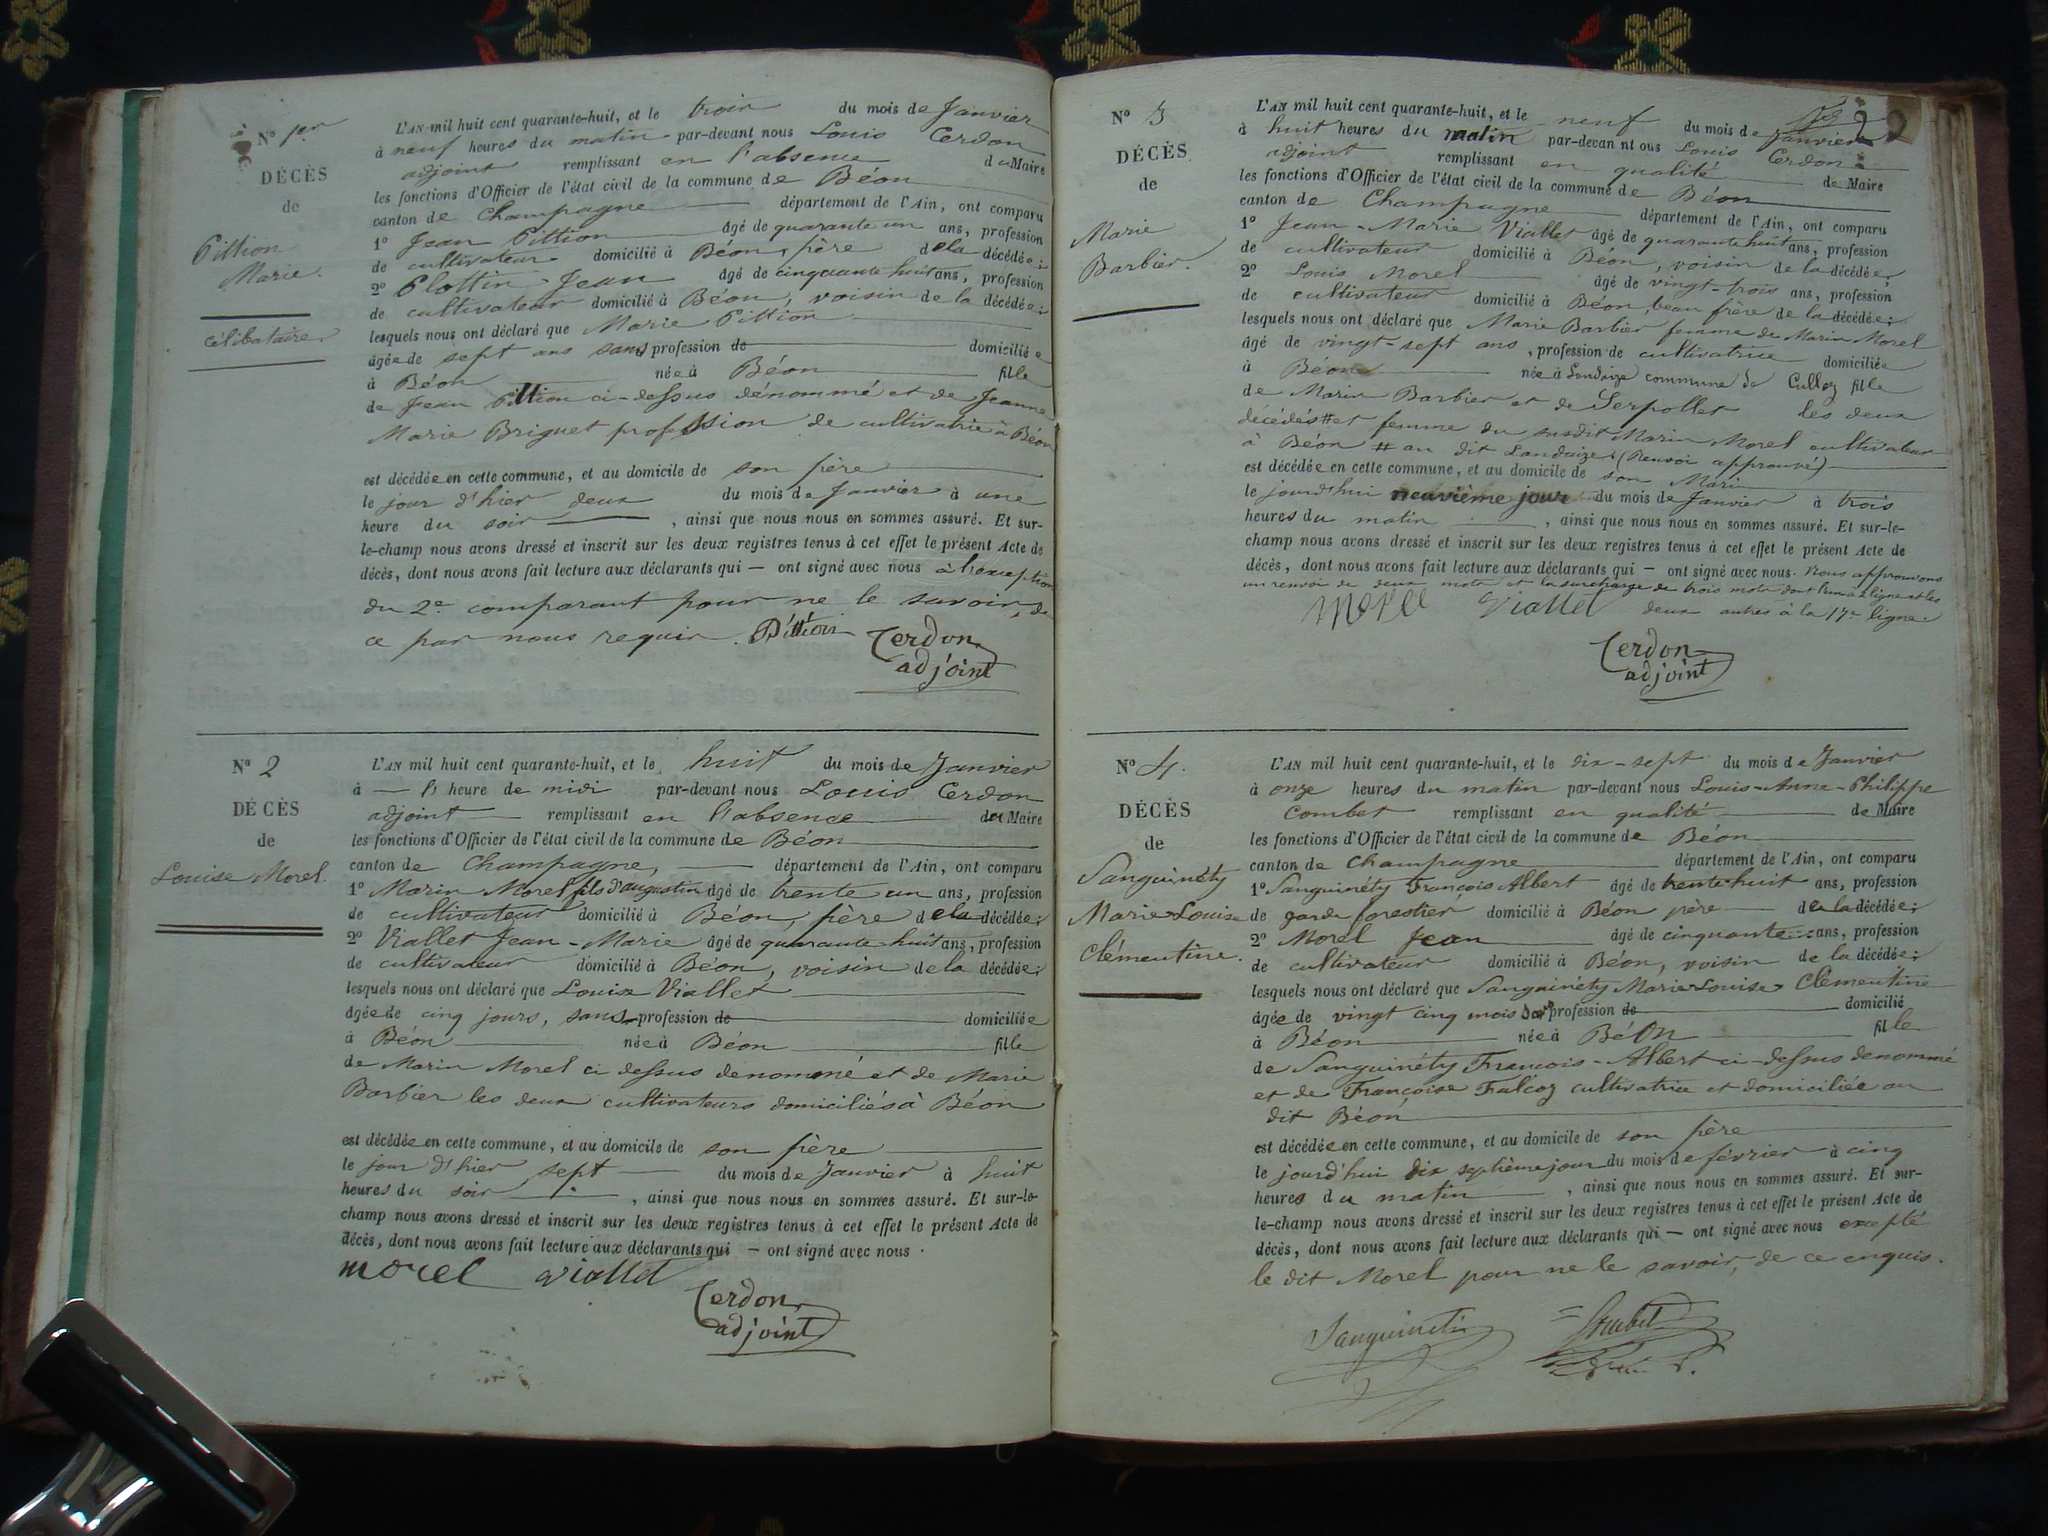 N° 1er
DÉCÈS
de
Pittion
Marie.
célibataire
L'AN mil huit cent quarante-huit, et le trois du mois de Janvier
à neuf heures du matin par-devant nous Louis Cerdon
adjoint remplissant en l'absence du Maire
les fonctions d'Officier de l'état civil de la commune de Béon
canton de Champagne département de l'Ain, ont comparu
1° Jean Pittion âgé de quarante un ans, profession
de cultivateur domicilié à Béon, père de la décédée;
2° Plottin Jean âgé de cinquante huit ans, profession
de cultivateur domicilié à Béon, voisin de la décédée;
lesquels nous ont déclaré que Marie Pittion
âgée de sept ans sans profession de domiciliée
à Béon née à Béon fille
de Jean Pittion ci-dessus dénommé et de Jeanne
Marie Briguet profession de cultivatrice à Béon
est décédée en cette commune, et au domicile de son père
le jour d'hier deux du mois de Janvier à une
heure du soir , ainsi que nous nous en sommes assuré. Et sur-
le-champ nous avons dressé et inscrit sur les deux registres tenus à cet effet le présent Acte de
décès, dont nous avons fait lecture aux déclarants qui — ont signé avec nous à l'exception
du 2e comparant pour ne le savoir, de
ce par nous requis. Pittion Cerdon
adjoint
N° 2
DÉCÈS
de
Louise Morel.
L'AN mil huit cent quarante-huit, et le huit du mois de Janvier
à — l'heure de midi par-devant nous Louis Cerdon
adjoint remplissant en l'absence du Maire
les fonctions d'Officier de l'état civil de la commune de Béon
canton de Champagne, département de l'Ain, ont comparu
1° Marin Morel fils d'augustin âgé de trente un ans, profession
de cultivateur domicilié à Béon, père de la décédée;
2° Viallet Jean-Marie âgé de quarante-huit ans, profession
de cultivateur domicilié à Béon, voisin de la décédée;
lesquels nous ont déclaré que Louise Viallet
âgée de cinq jours, sans profession de domiciliée
à Béon née à Béon fille
de Marin Morel ci dessus denommé et de Marie
Barbier les deux cultivateurs domiciliés à Béon
est décédée en cette commune, et au domicile de son père
le jour d'hier sept du mois de Janvier à huit
heures du soir , ainsi que nous nous en sommes assuré. Et sur-le-
champ nous avons dressé et inscrit sur les deux registres tenus à cet effet le présent Acte de
décès, dont nous avons fait lecture aux déclarants qui — ont signé avec nous.
morel viallet
Cerdon
adjoint
2
N° 3
DÉCÈS
de
Marie
Barbier.
L'AN mil huit cent quarante-huit, et le neuf du mois de Janvier
à huit heures du matin par-devant nous Louis Cerdon
adjoint remplissant en qualité de Maire
les fonctions d'Officier de l'état civil de la commune de Béon
canton de Champagne département de l'Ain, ont comparu
1° Jean-Marie Viallet âgé de quarante huit ans, profession
de cultivateur domicilié à Béon, voisin de la décédée;
2° Louis Morel âgé de vingt-trois ans, profession
de cultivateur domicilié à Béon, beau frère de la décédée;
lesquels nous ont déclaré que Marie Barbier femme de Marin Morel
âgé de vingt-sept ans, profession de cultivatrice domiciliée
à Béon née à Landaize commune de Culloz fille
de Marin Barbier et de Serpollet les deux
décédés # et femme du susdit Marin Morel cultivateur
à Béon # au dit Landaize (Renvoi approuvé)
est décédée en cette commune, et au domicile de son Mari
le jourd'hui neuvième jour du mois de Janvier à trois
heures du matin , ainsi que nous nous en sommes assuré. Et sur-le-
champ nous avons dressé et inscrit sur les deux registres tenus à cet effet le présent Acte de
décès, dont nous avons fait lecture aux déclarants qui — ont signé avec nous. Nous approuvons
un renvoi de deux mots et la surcharge de trois mots dont l'un a ligne et les
morel Viallet deux autres à la 17e ligne.
Cerdon
adjoint
N° 4.
DÉCÈS
de
Sanguinéty
Marie Louise
Clémentine.
L'AN mil huit cent quarante-huit, et le dix-sept du mois de Janvier
à onze heures du matin par-devant nous Louis-Anne-Philippe
Combet remplissant en qualité de Maire
les fonctions d'Officier de l'état civil de la commune de Béon
canton de Champagne département de l'Ain, ont comparu
1° Sanguinéty François Albert âgé de trente huit ans, profession
de garde forestier domicilié à Béon père de la décédée;
2° Morel Jean âgé de cinquante ans, profession
de cultivateur domicilié à Béon, voisin de la décédée;
lesquels nous ont déclaré que Sanguinéty Marie Louise Clémentine
âgée de vingt cinq mois sans profession de domicilié
à Béon née à Béon fille
de Sanguinéty François-Albert ci-dessus denommé
et de Françoise Falcoz cultivatrice et domiciliée au
dit Béon
est décédée en cette commune, et au domicile de son père
le jourd'hui dix septième jour du mois de février à cinq
heures du matin , ainsi que nous nous en sommes assuré. Et sur-
le-champ nous avons dressé et inscrit sur les deux registres tenus à cet effet le présent Acte de
décès, dont nous avons fait lecture aux déclarants qui — ont signé avec nous excepté
le dit Morel pour ne le savoir, de ce enquis.
Sanguinéti Combet